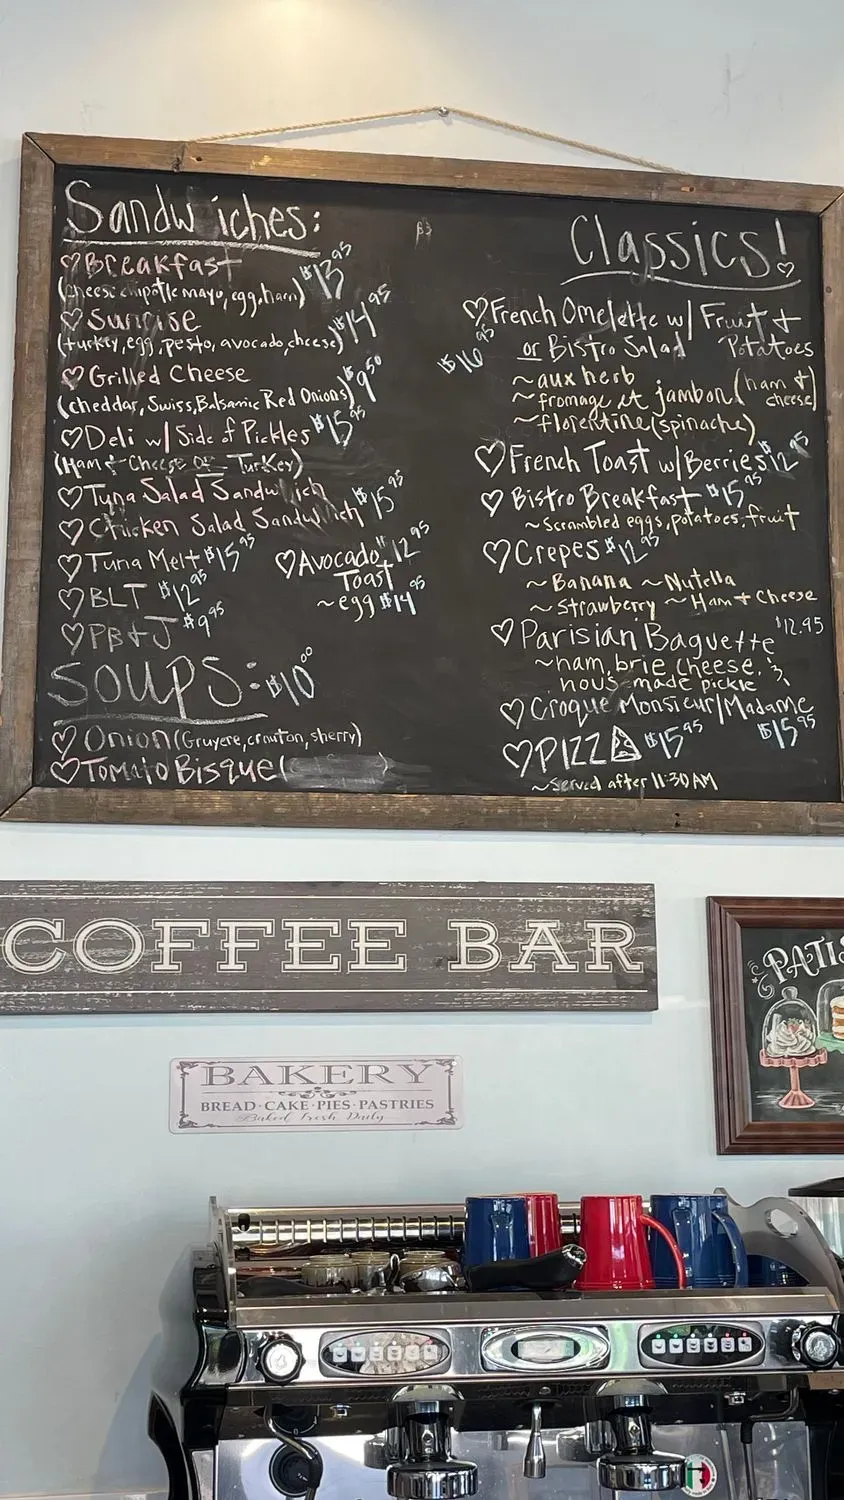 Sandwiches:
♡Breakfast $13.95
(cheese, chipotle mayo, egg, ham)
♡Sunrise $14.95
(turkey, egg, pesto, avocado, cheese)
♡Grilled Cheese $9.50
(cheddar, Swiss, Balsamic Red Onions)
♡Deli w/ Side of Pickles $15.95
(Ham & Cheese or Turkey)
♡Tuna Salad Sandwich
♡Chicken Salad Sandwich $15.95
♡Tuna Melt $15.95
♡BLT $12.95
♡PB+J $9.95
♡Avocado 12.95
Toast
~egg $14.95
SOUPS: $10.00
♡Onion (Gruyere, crouton, sherry)
♡Tomato Bisque (
Classics!♡
♡French Omelette w/ Fruit +
or Bistro Salad Potatoes
$16.95
~aux herb
~fromage et jambon (ham + cheese)
~florentine (spinache)
♡French Toast w/ Berries $12.95
♡Bistro Breakfast $15.95
~scrambled eggs, potatoes, fruit
♡Crepes $12.95
~Banana ~Nutella
~Strawberry ~Ham + Cheese
♡Parisian Baguette $12.95
~ham, brie cheese, &
hous made pickle
♡Croque Monsieur/Madame
$15.95
♡PIZZA $15.95
~Served after 11:30 AM
COFFEE BAR
BAKERY
BREAD·CAKE·PIES·PASTRIES
Baked Fresh Daily
PATIS